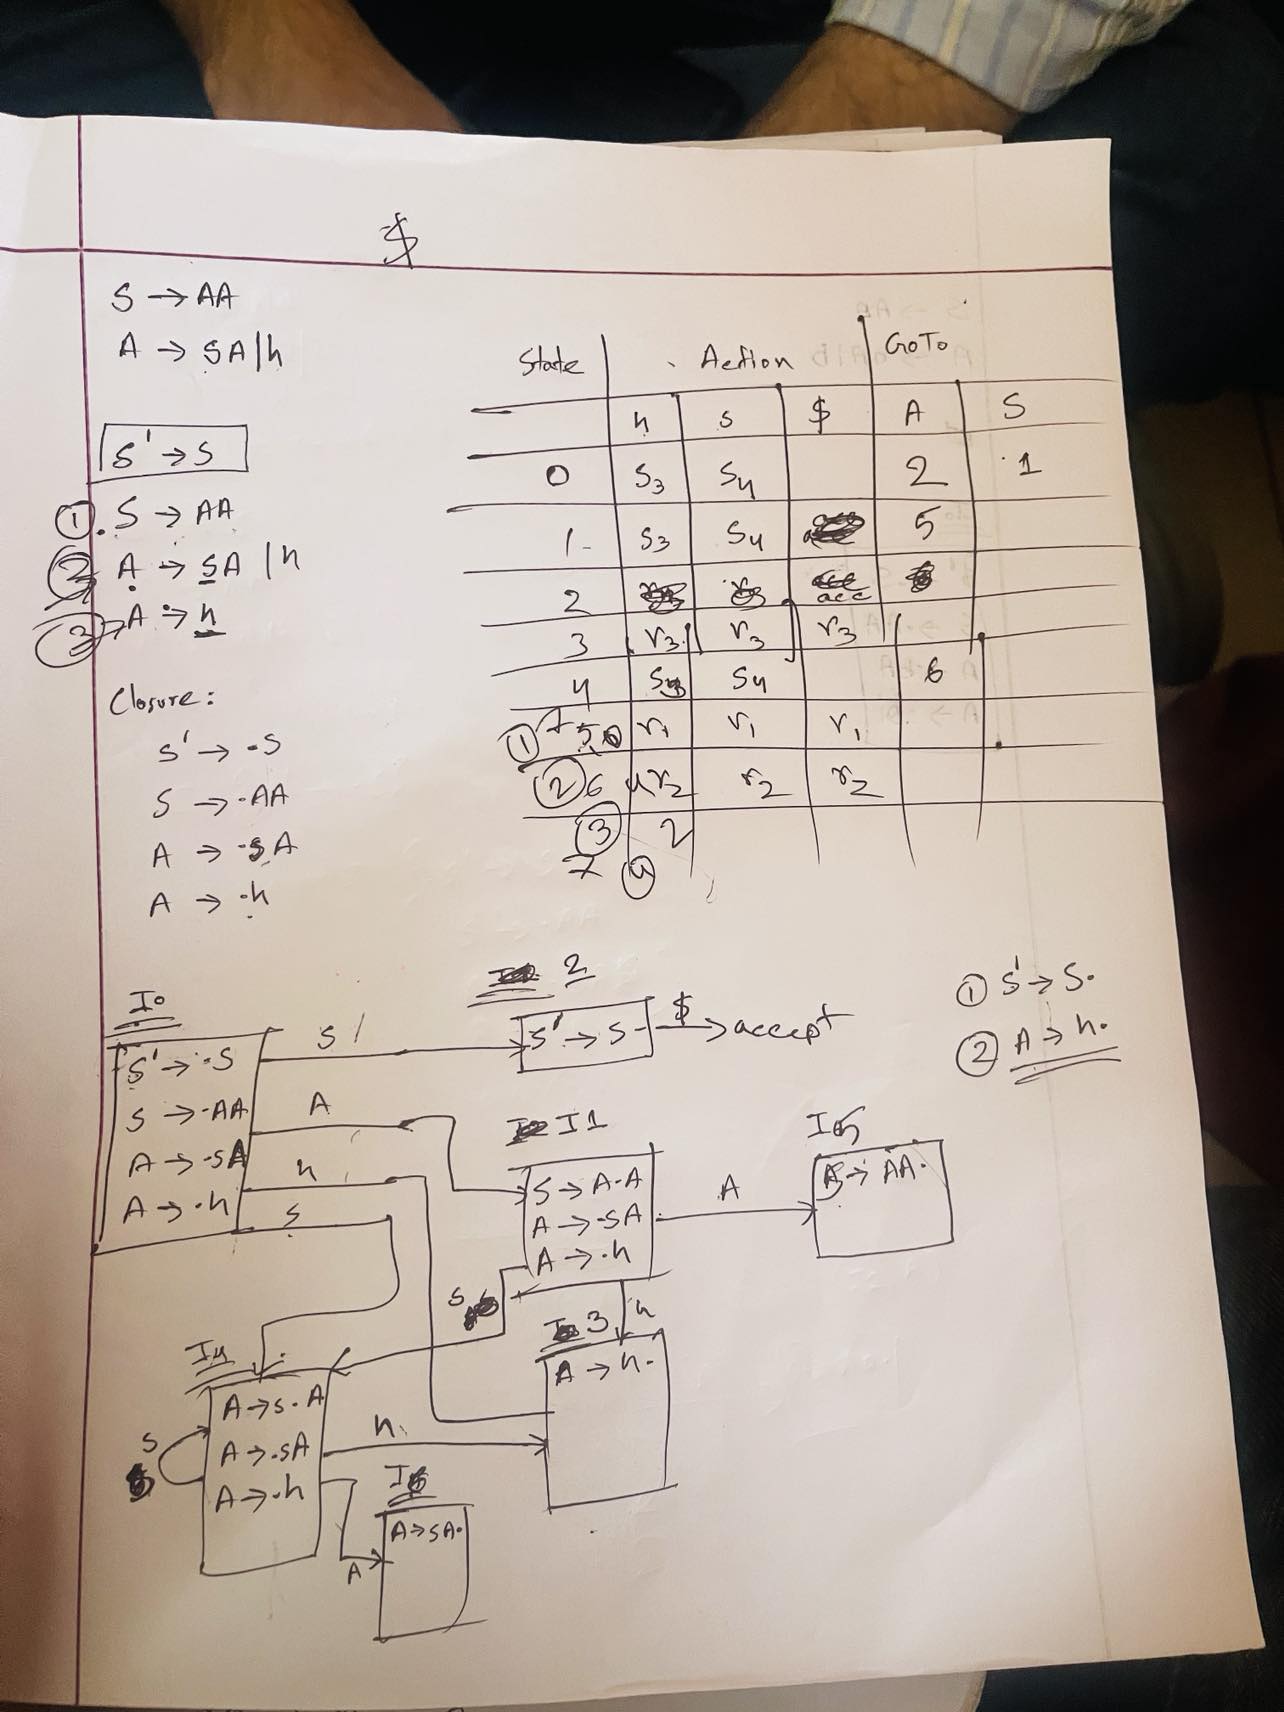 $
S → AA
A → sA|h
S' → S
① S → AA
② A → sA | h
③ → A → h
Closure:
S' → ·S
S → ·AA
A → ·sA
A → ·h
State Action GoTo
h s $ A S
0 S3 S4 2 1
1 S3 S4 5
2 acc
3 r3 r3 r3
4 S4 6
① 5 r1 r1 r1
② 6 r2 r2 r2
③ 2
7 ④
I0
S' → ·S
S → ·AA
A → ·sA
A → ·h
S
A
h
s
2
S' → S·
$
accept
① S' → S·
② A → h·
I1
S → A·A
A → ·sA
A → ·h
A
I5
S → AA·
s
h
3
A → h·
I4
A → s·A
A → ·sA
A → ·h
s
h
A
I6
A → sA·